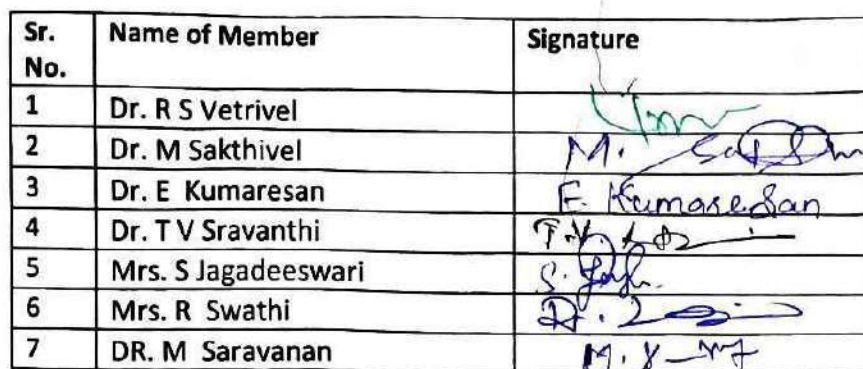 Sr. No. Name of Member Signature
1 Dr. R S Vetrivel
2 Dr. M Sakthivel M.
3 Dr. E Kumaresan E. Kumaresan
4 Dr. T V Sravanthi T.V.
5 Mrs. S Jagadeeswari S.
6 Mrs. R Swathi R.
7 DR. M Saravanan M.